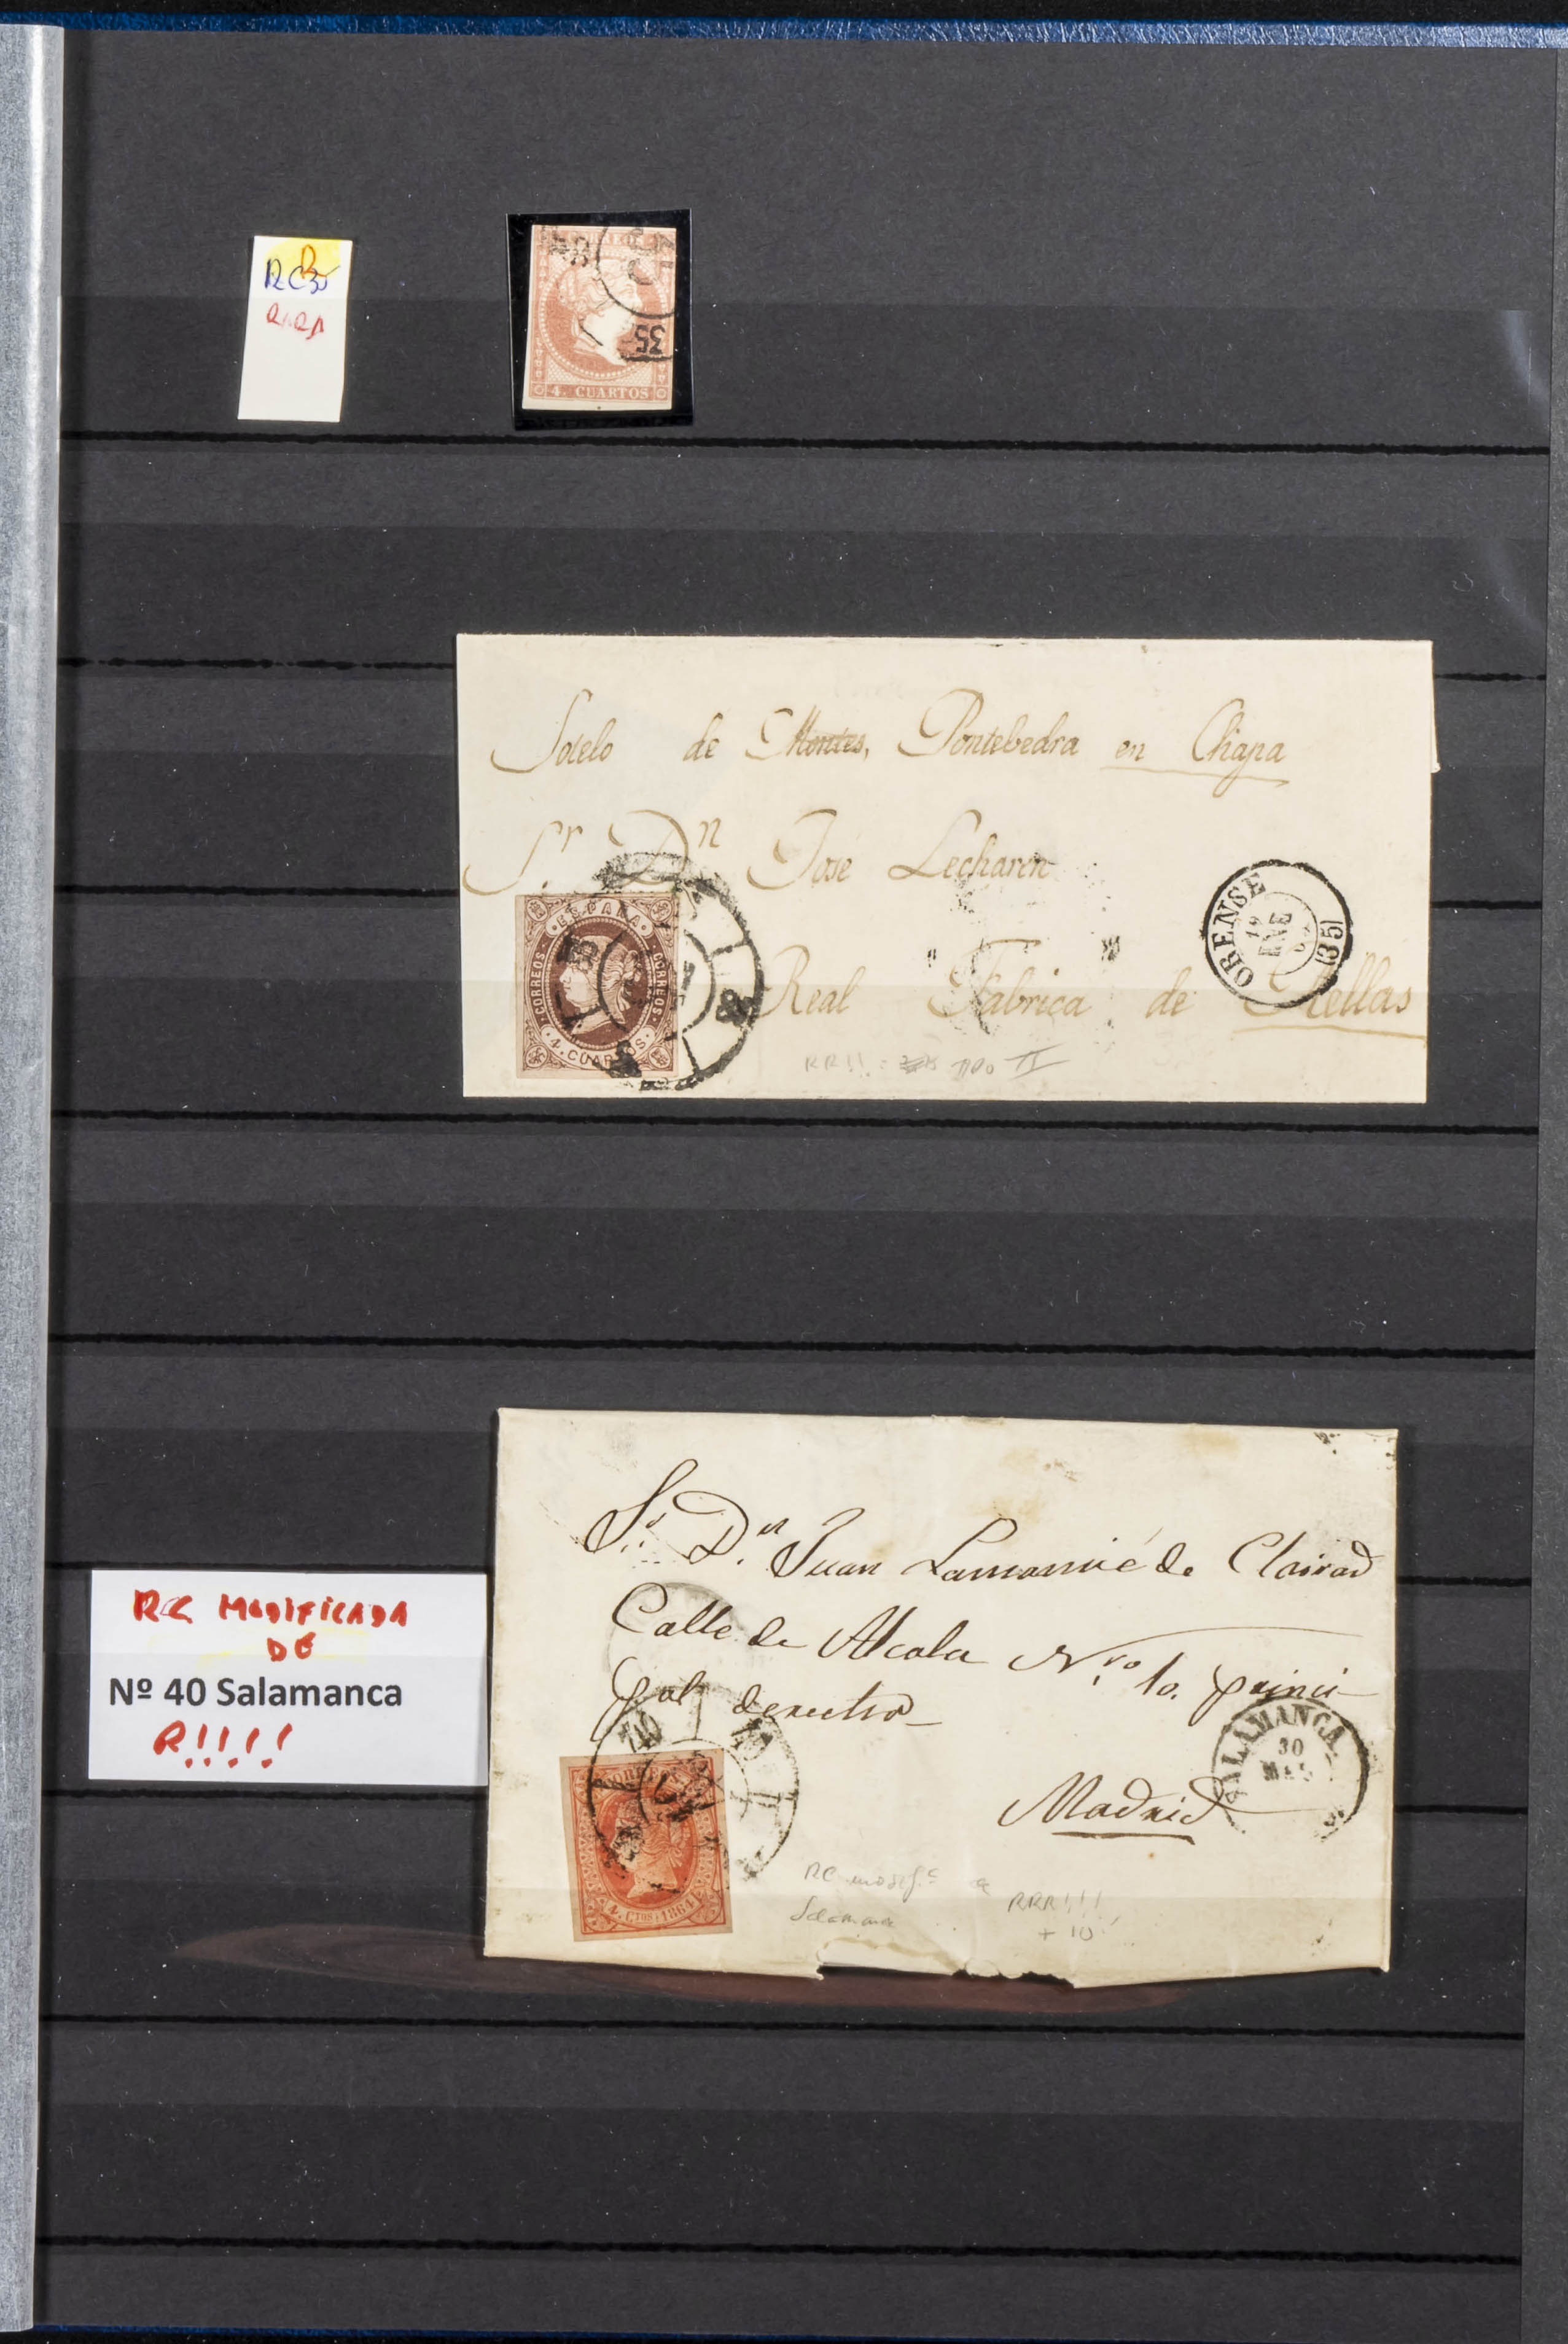 RC 35
RARA
35
4. CUARTOS
Sotelo de Montes, Pontebedra en Chapa
Sr. Dn José Lecharen
Real Fabrica de Tellas
ESPAÑA
CORREOS
CORREOS
4. CUARTOS
ORENSE
12
ENE
(35)
RR!! TIPO II
RC MODIFICADA
DE
Nº 40 Salamanca
R!!!!
Sr. Dn Juan Lamamié de Clairac
Calle de Alcala Nro 10. princi
pal derecha
Madrid
SALAMANCA
30
MAR
40
4. CTOS 1864
RC modif. a
Salamanca
RRR!!!!
+ 10